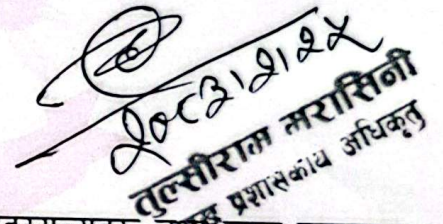 २०८३।२।२५
तुल्सीराम मरासिनी
प्रशासकीय अधिकृत